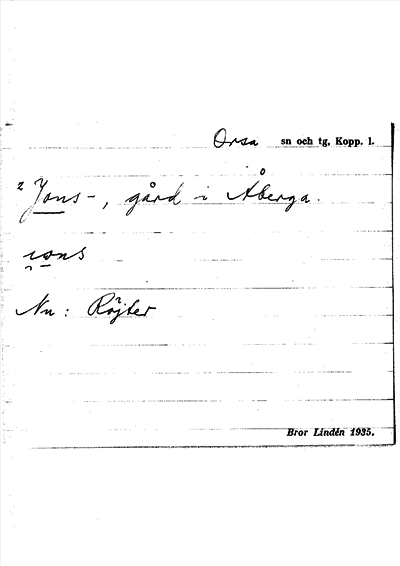 Orsa sn och tg, Kopp. l.
2 Jons-, gård i Åberga.
ions
Nu: Röjter
Bror Lindén 1935.